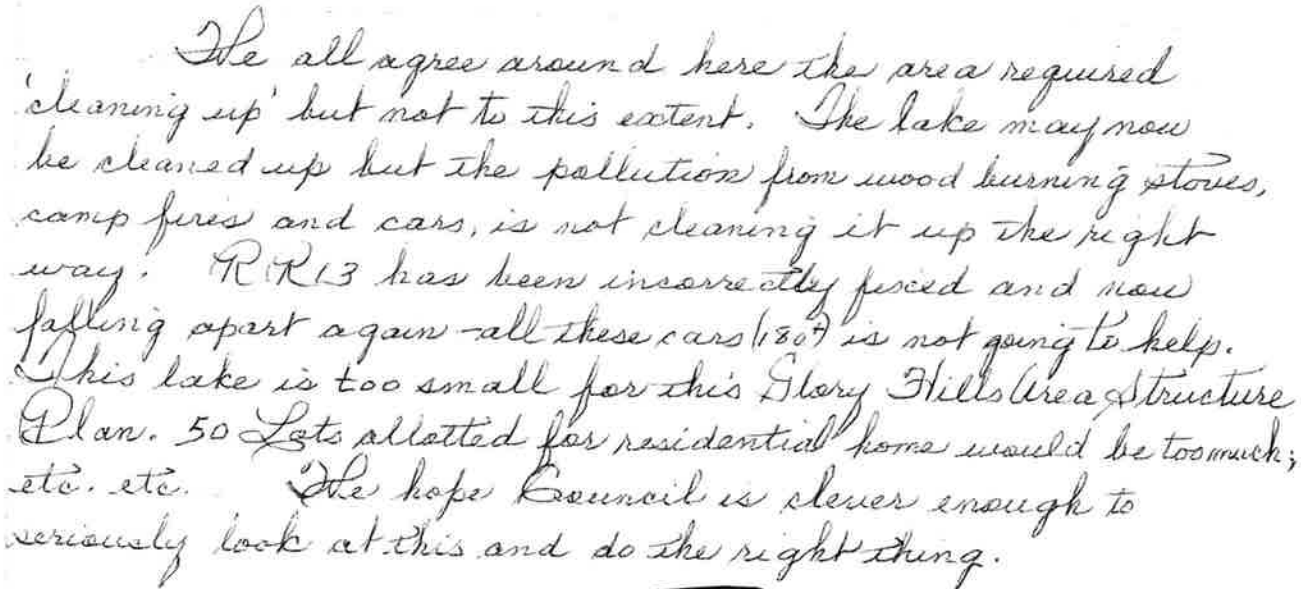 We all agree around here the area required
'cleaning up' but not to this extent. The lake may now
be cleaned up but the pollution from wood burning stoves,
camp fires and cars, is not cleaning it up the right
way. RR13 has been incorrectly fixed and now
falling apart again - all these cars (180+) is not going to help.
This lake is too small for this Glory Hills Area Structure
Plan. 50 Lots allotted for residential home would be too much;
etc. etc. We hope Council is clever enough to
seriously look at this and do the right thing.